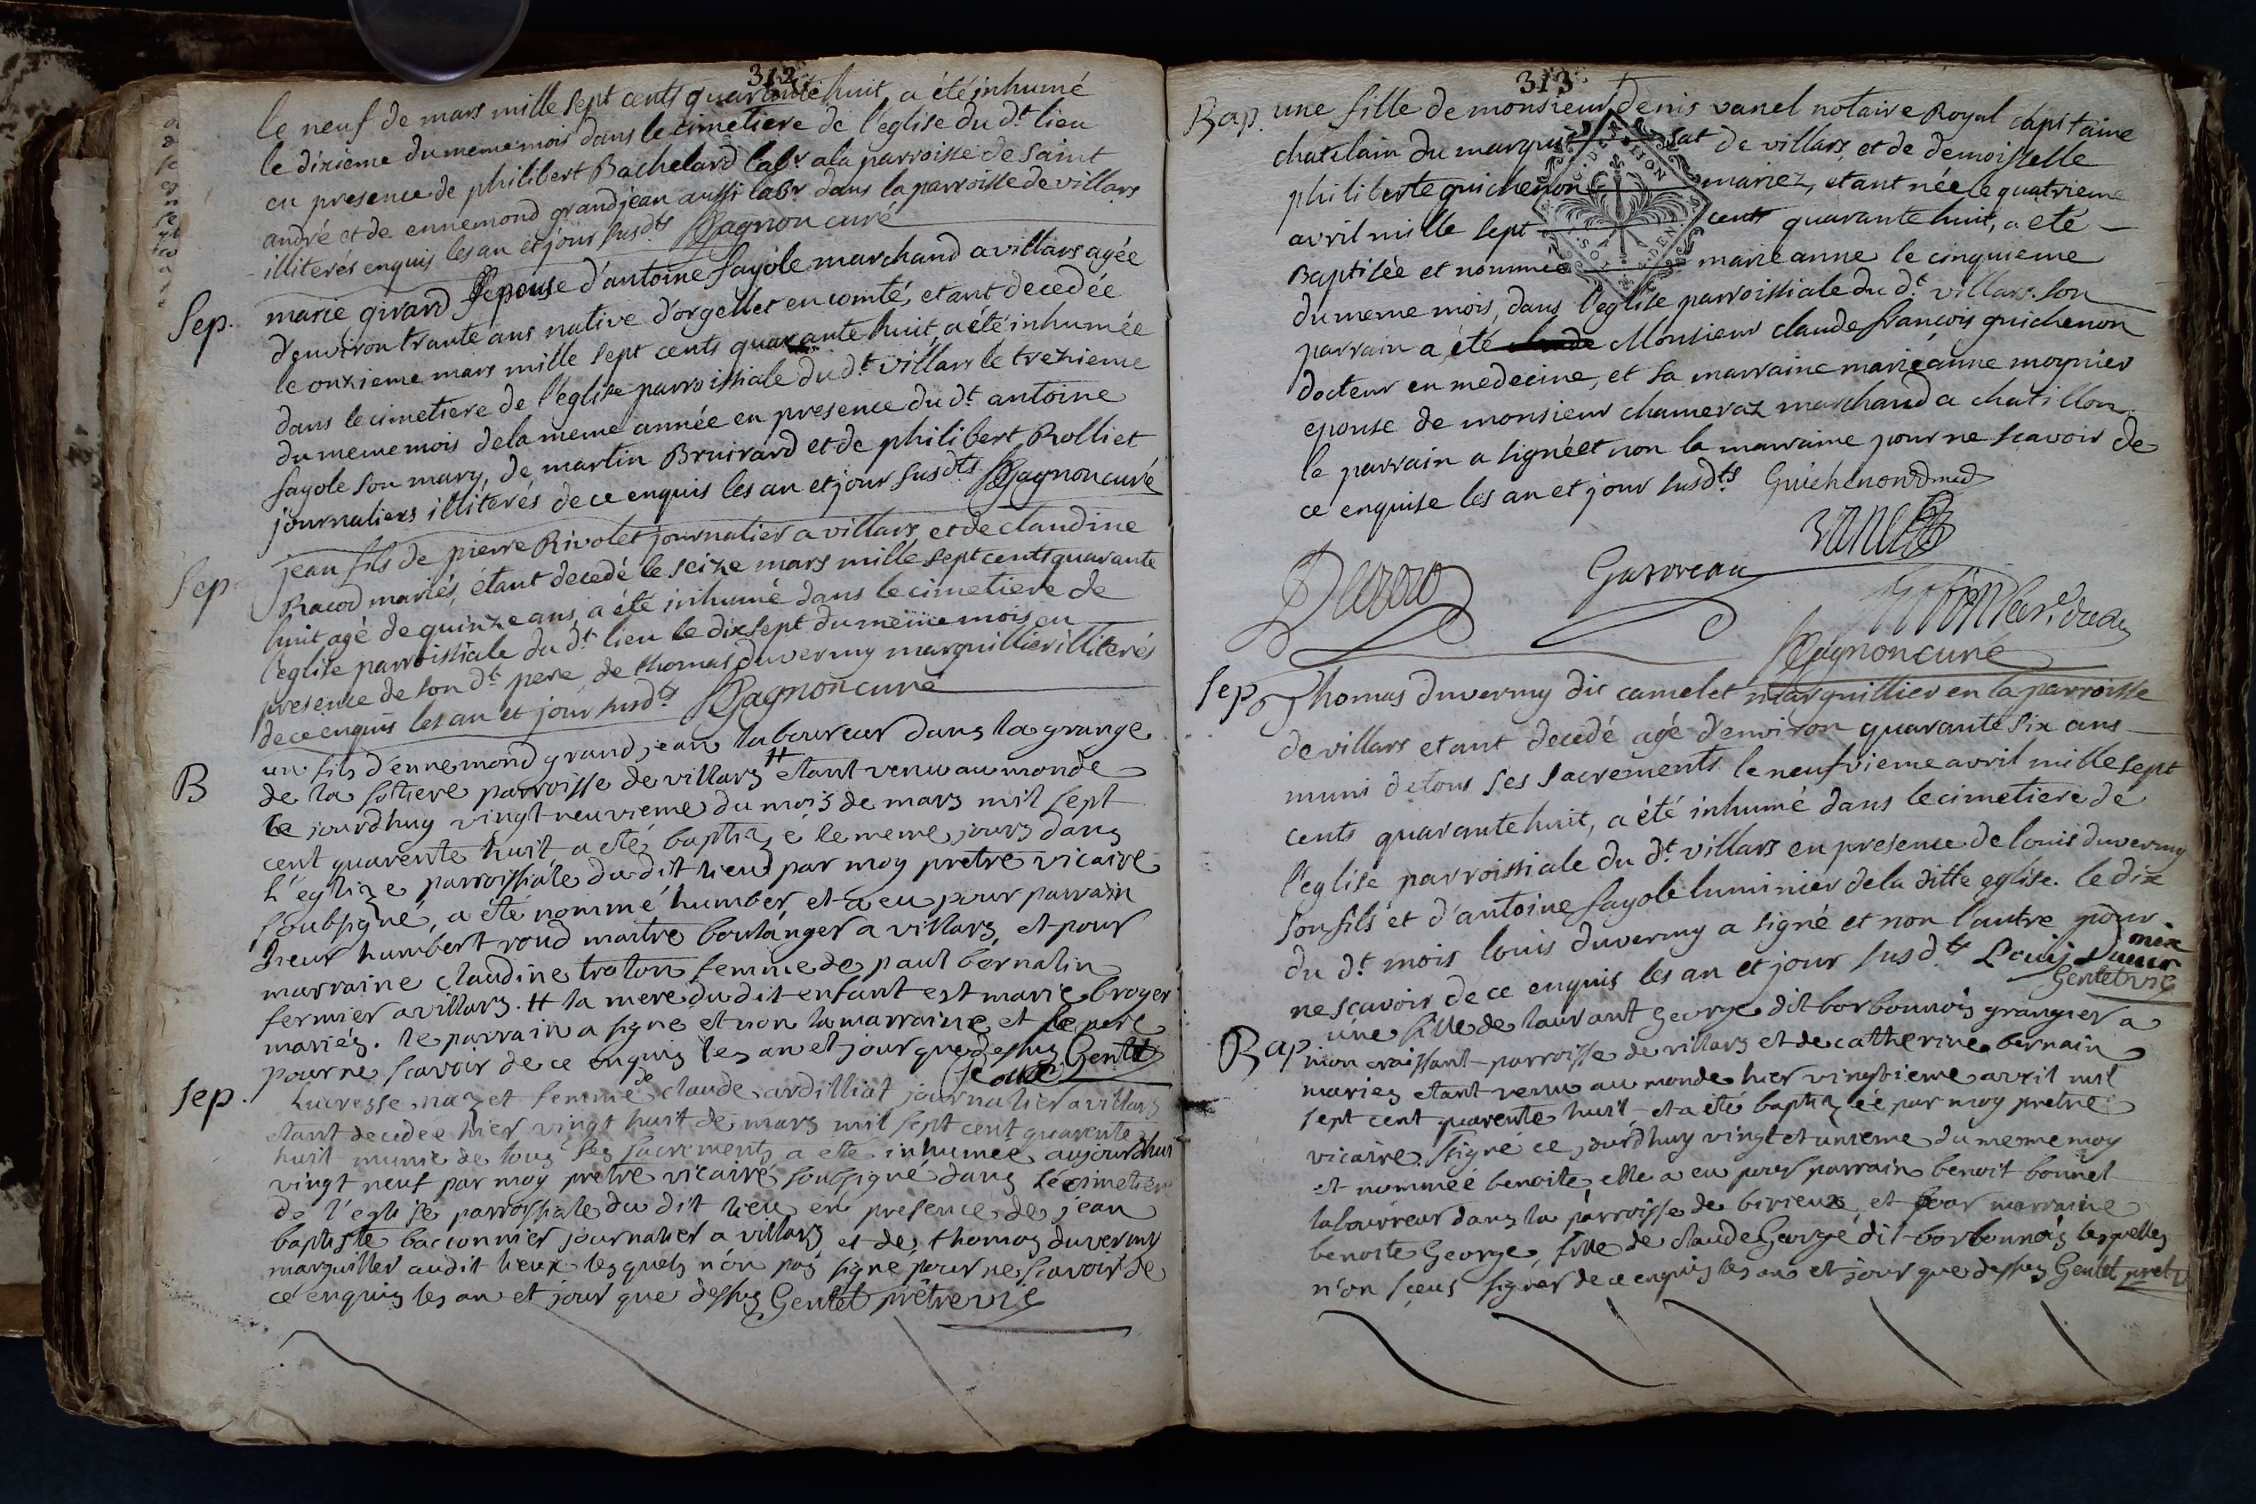 312
le neuf de mars mille sept cents quarante huit a été inhumé
le dixieme du meme mois dans le cimetiere de l'eglise du dt lieu
en presence de philibert Bachelard labr a la parroisse de saint
andré et de ennemond grandjean aussi labr dans la parroisse de villars
illiterés enquis les an et jour susdts Pagnon curé
Sep. marie girard epouse d'antoine fayole marchand a villars agée
d'environ trante ans native d'orgellet en comté, etant decedée
le onzieme mars mille sept cents quarante huit, a été inhumée
dans le cimetiere de l'eglise parroissiale du dt villars le trezieme
du meme mois de la meme année en presence du dt antoine
fayole son mary, de martin Bruirard et de philibert Rolliet
journaliers illiterés de ce enquis les an et jour susdts Pagnon curé
Sep. jean fils de pierre Rivolet journalier a villars et de claudine
Racod mariés, étant decedé le seize mars mille sept cents quarante
huit agé de quinze ans, a été inhumé dans le cimetiere de
l'eglise parroissiale du dt lieu le dix sept du meme mois en
presence de son dt pere de thomas duverny marguillier illiterés
de ce enquis les an et jour susdts Pagnon curé
B un fils d'ennemond grand jean laboureur dans la grange
de la sotiere parroisse de villars # etant venu au monde
le jourdhuy vingt neuvieme du mois de mars mil sept
cent quarente huit a eté baptizé le meme jours dans
l'eglize parroissiale du dit lieu par moy pretre vicaire
soubsigné, a été nommé humber, et a eu pour parrain
sieur humbert roud maitre boulanger a villars, et pour
marraine claudine traton femme de paul bornatin
fermier a villars. # la mere du dit enfant est marie broyer
mariés. le parrain a signe et non la marraine et le pere
pour ne scavoir de ce enquis les an et jour que dessus Gentet
Sep. Lucresse nazet femme de claude ardilliat journalier a villars
etant decedee hier vingt huit de mars mil sept cent quarente
huit munie de tous ses sacrements a eté inhumee aujourdhui
vingt neuf par moy pretre vicaire soubsigne dans le cimetier
de l'eglise parroissiale du dit lieu en presence de jean
baptiste bacionnier journalier a villars et de thomas duverny
marguillier audit lieux lesquels n'on pas signe pour ne scavoir de
ce enquis les an et jour que dessus Gentet prêtre vic
313
Bap. une fille de monsieur denis vanel notaire Royal capitaine
chatelain du marquisat de villars et de demoisselle
philiberte guichenon mariez, etant née le quatrieme
avril mille sept cents quarante huit, a eté
Baptisée et nommée marie anne le cinquieme
du meme mois, dans l'eglise parroissiale du dt villars. son
parrain a été Monsieur claude françois guichenon
docteur en medecine, et sa marraine marie anne moynier
epouse de monsieur chameraz marchand a chatillon
le parrain a signé et non la marraine pour ne scavoir de
ce enquise les an et jour susdts Guichenon dmed
vanel
Gazoreau
Pagnon curé
Sep. Thomas duverny dit camelet marguillier en la parroisse
de villars etant decedé agé d'environ quarante six ans
muni de tous ses sacrements le neufvieme avril mille sept
cents quarante huit, a été inhumé dans le cimetiere de
l'eglise parroissiale du dt villars en presence de louis duverny
son fils et d'antoine fayole luminier de la ditte eglise. le dix
du dt mois louis duverny a signé et non l'autre pour
ne scavoir de ce enquis les an et jour susdts Louis duver
nix
Gentet vic
Bap. une fille de laurant George dit borbonnois grangier a
mon craissant parroisse de villars et de catherine bernain
mariez etant venu au monde hier vingtieme avril mil
sept cent quarente huit et a été baptizée par moy pretre
vicaire signé ce jourdhuy vingt et unieme du meme moy
et nommée benoite, elle a eu pour parrain benoit bonnet
laboureur dans la parroisse de birieux et pour marraine
benoite George, fille de claude George dit borbonnois lesquelles
n'on sceus signer de ce enquis les an et jour que dessus Gentet pret v